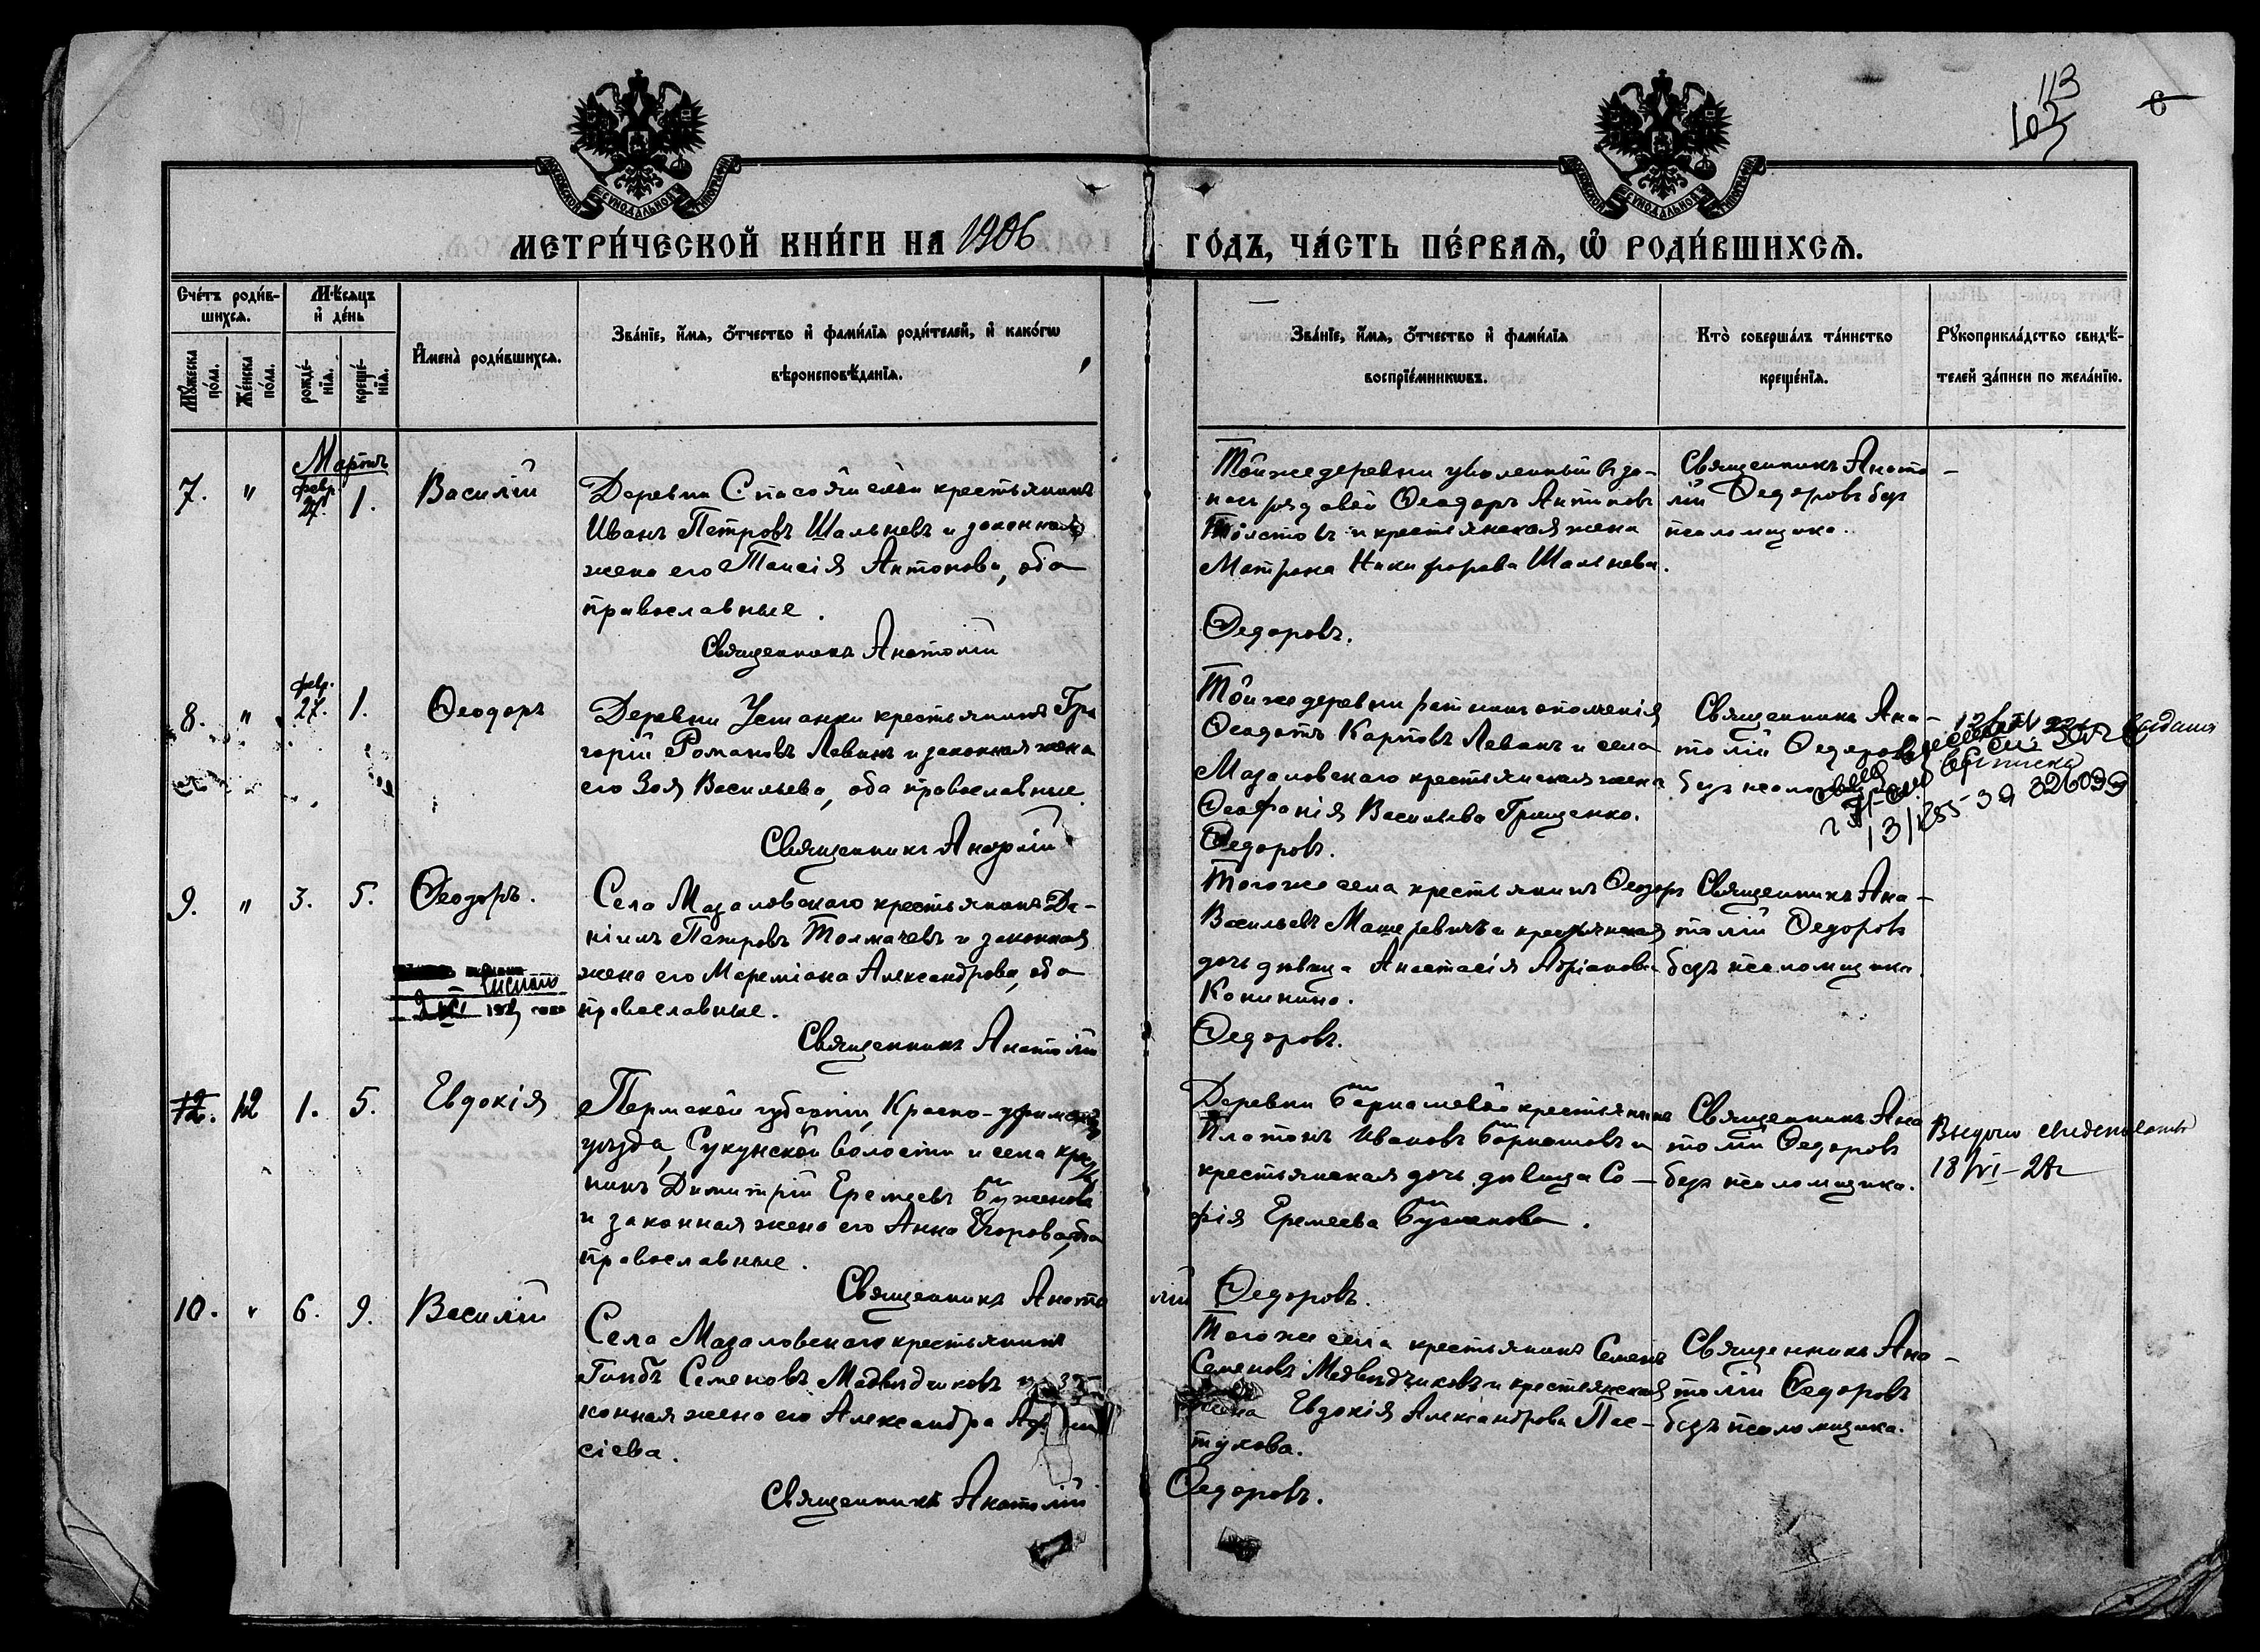 113
103
6
МЕТРИ́ЧЕСКОЙ КНИ́ГИ НА 1906 ГО́ДЪ, ЧА́СТЬ ПЕ́РВАЯ, Ѿ РОДИ́ВШИХСЯ.
Сче́тъ роди́в-
шихся.
Мѣсяцъ
и де́нь
Мꙋ́жеска
по́ла.
Же́нска
по́ла.
рожде́-
нїя.
креще́-
нїя.
Имена̀ роди́вшихся.
Зва́нїе, и́мя, о́тчество и фами́лїя роди́телей, и како́гѡ
вѣроисповѣ́данїя.
Зва́нїе, и́мя, о́тчество и фами́лїя
воспрїе́мникѡвъ.
Кто̀ соверша́лъ та́инство
креще́нїя.
Рꙋкоприкла́дство свидѣ́-
телей за́писи по жела́нїю.
Мартъ
7. " февр. 1. Василій
Деревни крестьянинъ
Иванъ Петровъ Шальневъ и законная
жена его Таисія Антонова, оба
православные.
Священникъ Анатолій
Той же деревни уволенный въ за-
пасъ рядовой Ѳеодоръ Антиповъ
Толстовъ и крестьянская жена
Матрона Никифорова Шальнева.
Ѳедоровъ.
Священникъ Анато-
лій Ѳедоровъ безъ
псаломщика.
8. " февр. 27. 1. Ѳеодоръ
Деревни Устанки крестьянинъ Гри
горій Романовъ Левинъ и законная жена
его Зоя Васильева, оба православные
Священникъ Анатолій
Той же деревни ратникъ ополченія
Ѳеодотъ Карповъ Левинъ и села
Мазаловскаго крестьянская жена
Ѳеофанія Васильева Грищенко.
Ѳедоровъ.
Священникъ Ана-
толій Ѳедоровъ
безъ
9. " 3. 5. Ѳеодоръ.
1929 года
Села Мазаловскаго крестьянинъ Да-
ніилъ Петровъ Толмачевъ и законная
жена его Мареміана Александрова, оба
православные.
Священникъ Анатолій
Того же села крестьянинъ Ѳеодоръ
Васильевъ Машеревичъ и крестьянская
дочь дѣвица Анастасія Адріанова
Конинина.
Ѳедоровъ.
Священникъ Ана-
толій Ѳедоровъ
безъ псаломщика.
12. 12 1. 5. Евдокія
Пермской губерніи, Красно-уфимскаго
уѣзда, Сукунской волости и села крестья
нинъ Димитрій Еремеевъ Буженовъ
и законная жена его Анна Егорова, оба
православные.
Священникъ Анатолій
Деревни Барнашевой крестьянинъ
Платонъ Ивановъ Барнашовъ и
крестьянская дочь дѣвица Со-
фія Еремеева Буженова.
Ѳедоровъ.
Священникъ Ана
толій Ѳедоровъ
безъ псаломщика.
Выдано свидетельство
18/VI-28г
10. " 6. 9. Василій
Села Мазаловскаго крестьянинъ
Глебъ Семеновъ Медвѣдчиковъ и за-
конная жена его Александра
сіева.
Священникъ Анатолій
Того же села крестьянинъ Семенъ
Семеновъ Медвѣдчиковъ и крестьянская
жена Евдокія Александрова Пас-
тухова.
Ѳедоровъ.
Священникъ Ана-
толій Ѳедоровъ
безъ псаломщика.